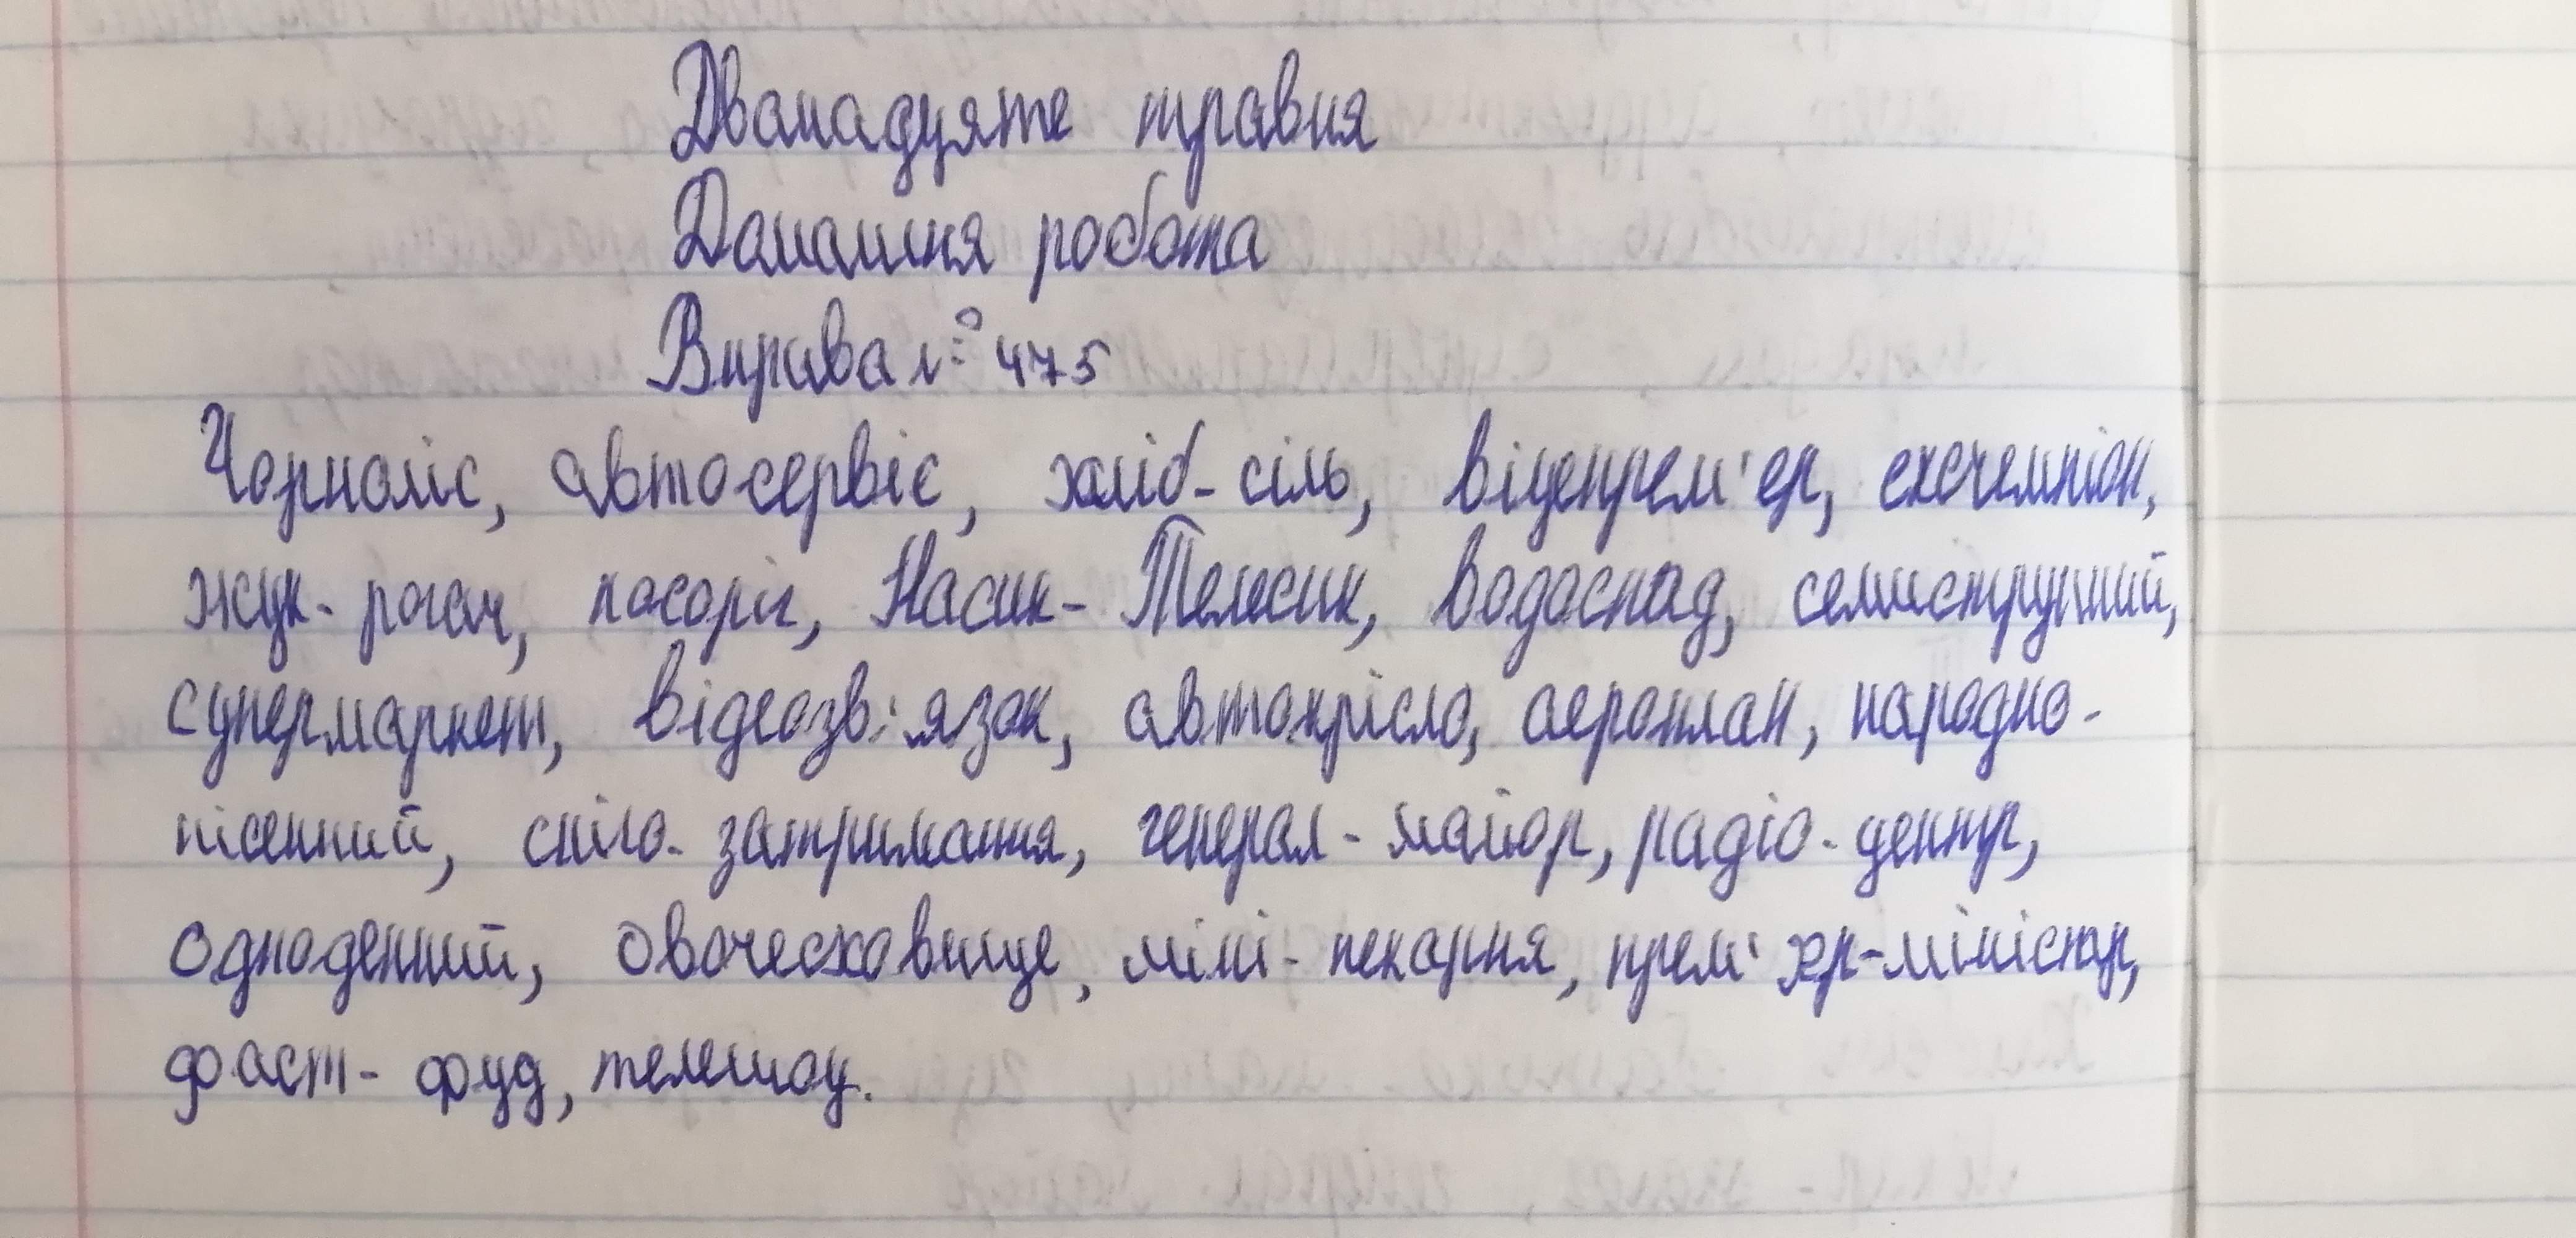 Дванадцяте травня
Домашня робота
Вправа № 475
Чорноліс, автосервіс, хліб-сіль, віцепрем'єр, ексчемпіон,
жук-рогач, носоріг, Івасик-Телесик, водоспад, семиструнний,
супермаркет, відеозв'язок, автокрісло, аероплан, народно-
пісенний, сніго-затримання, генерал-майор, радіо-центр,
одноденний, овочесховище, міні-пекарня, прем'єр-міністр,
фаст-фуд, телешоу.